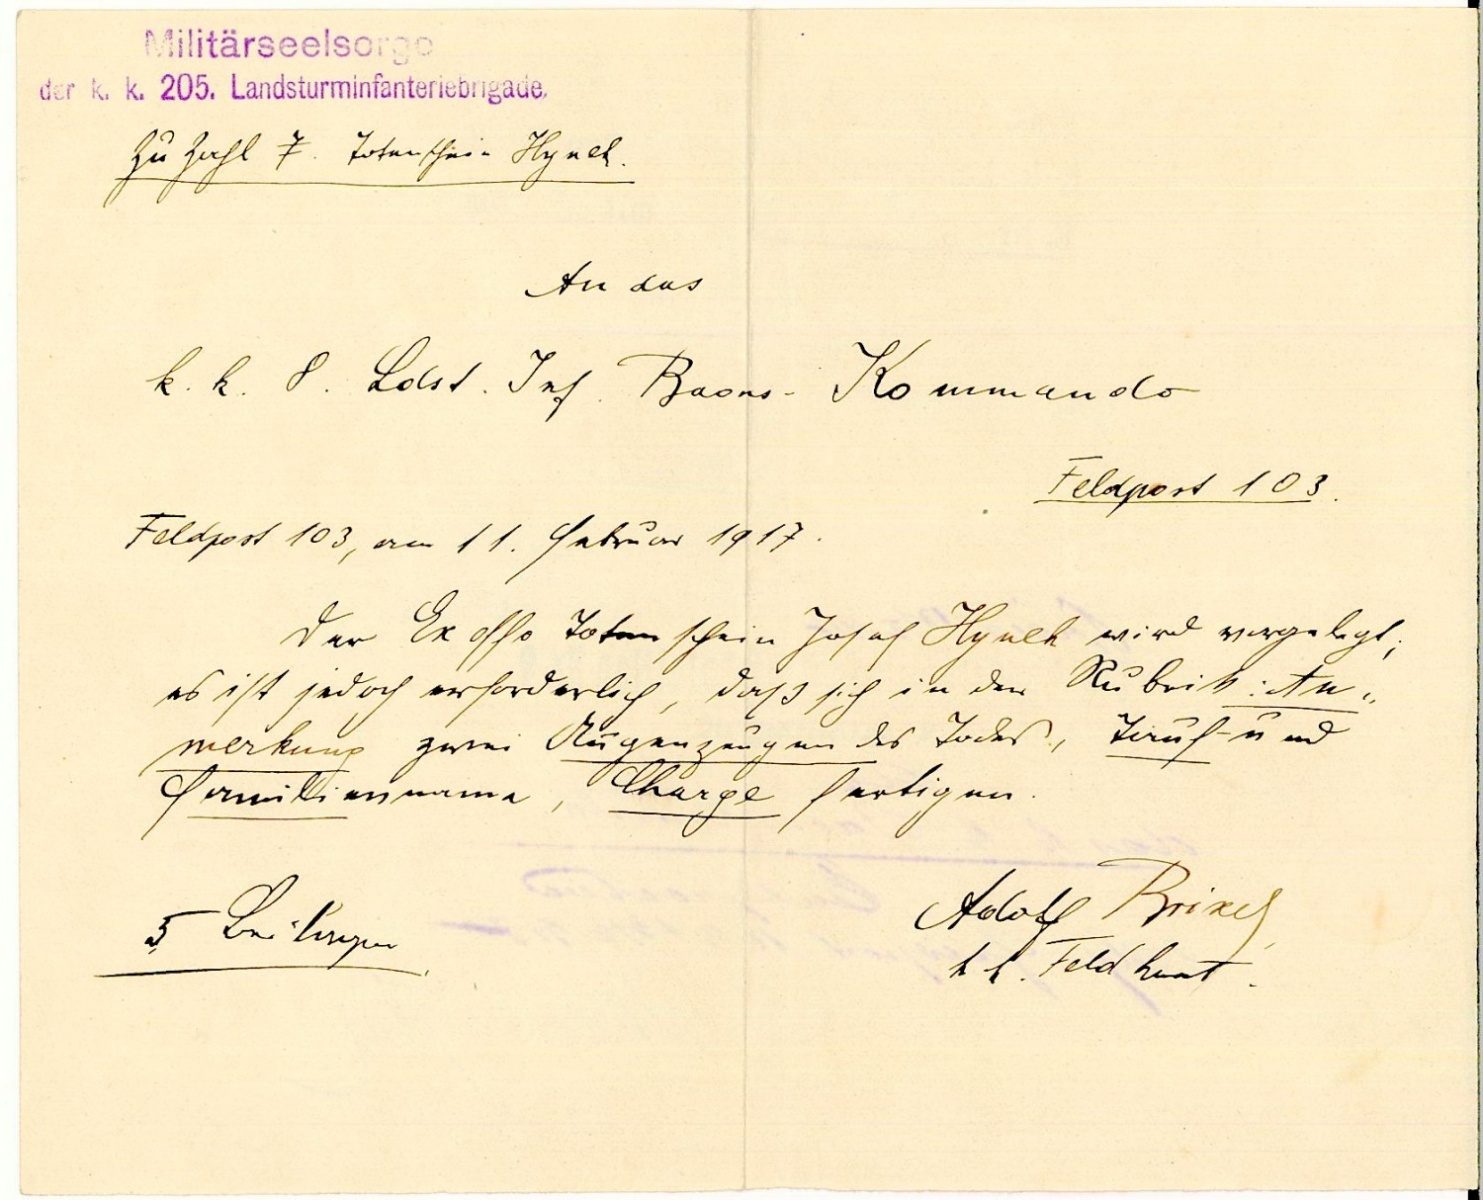 Militärseelsorge
der k. k. 205. Landsturminfanteriebrigade.
Zu Zahl 7. Totenschein Hynek.
An das
k. k. 8. Ldst. Inf. Baons-Kommando
Feldpost 103.
Feldpost 103, am 11. Februar 1917.
Der Ex offo Totenschein Josef Hynek wird vorgelegt;
es ist jedoch erforderlich, daß sich in der Rubrik: An-
merkung zwei Augenzeugen des Todes, Tauf- und
Familienname, Charge fertigen.
5 Beilagen
Adolf
k k. Feldkurat.